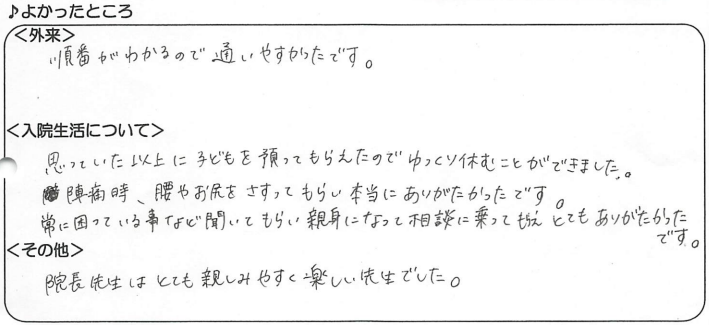 ♪よかったところ
＜外来＞
順番がわかるので通いやすかったです。
＜入院生活について＞
思っていた以上に子どもを預ってもらえたのでゆっくり休むことができました。
陣痛時、腰やお尻をさすってもらい本当にありがたかったです。
常に困っている事など聞いてもらい親身になって相談に乗ってもらえとてもありがたかった
です。
＜その他＞
院長先生はとても親しみやすく楽しい先生でした。